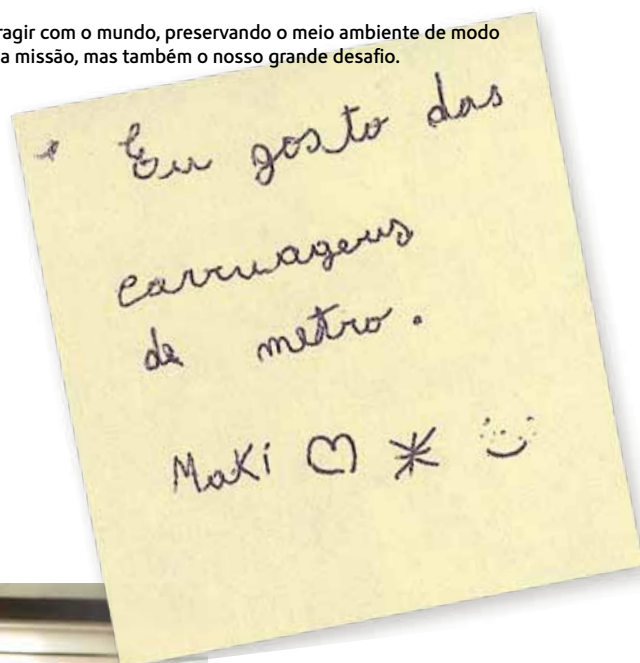 ragir com o mundo, preservando o meio ambiente de modo
a missão, mas também o nosso grande desafio.
Eu gosto das
carruagens
de metro.
Maki